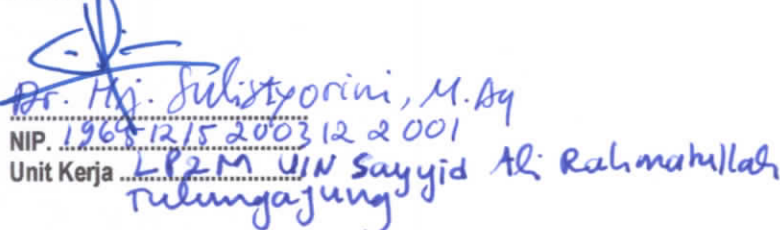 Dr. Hj. Sulistyorini, M.Ag
NIP. 19681215 200312 2 001
Unit Kerja LP2M UIN Sayyid Ali Rahmatullah
Tulungagung